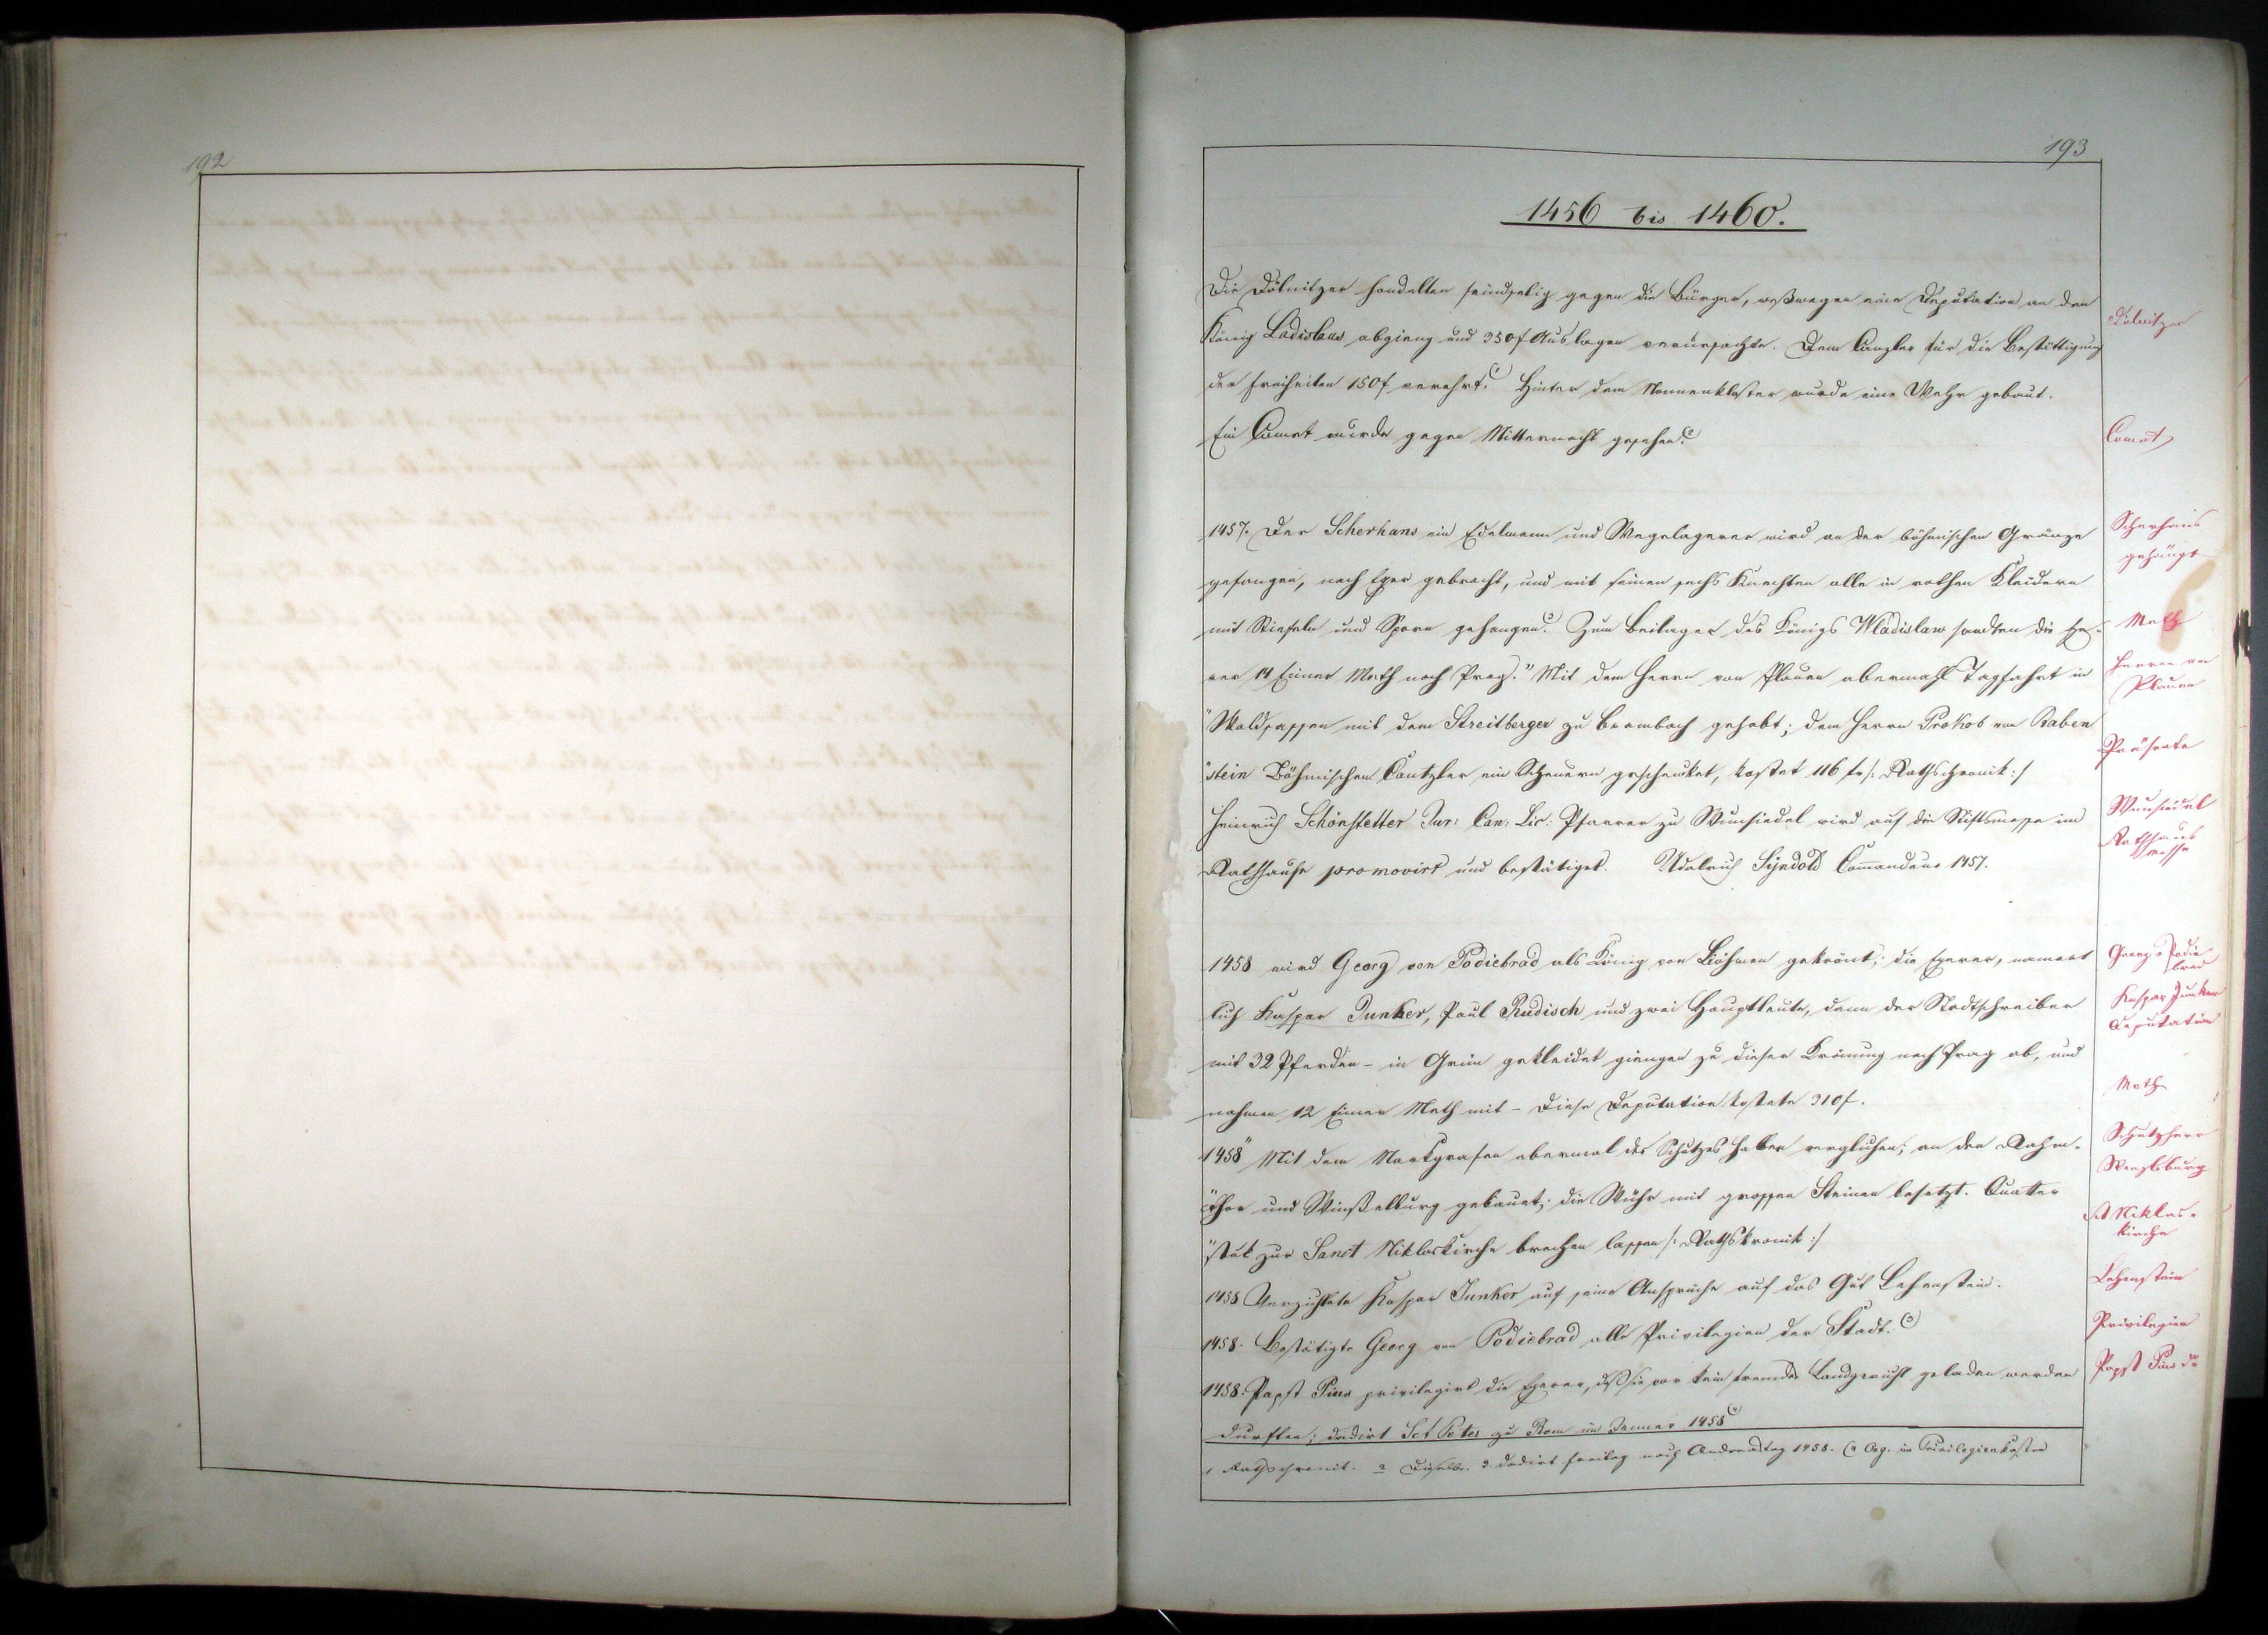 192
193
1456 bis 1460.
Die Dölnitzer handelten feindselig gegen die Bürger, weßwegen eine Deputation an den
König Ladislaus abgieng und 350 f Auslagen verursachte. Dem Canzler für die Bestättigung
der Freiheiten 150 f verehrt. Hinter dem Nonnenkloster wurde eine Wehr gebaut.
Ein Comet wurde gegen Mitternacht gesehen.
Dölnitzer
Comet
1457. Der Scherhans ein Edelmann und Wegelagerer wird an der böhmischen Gränze
gefangen, nach Eger gebracht, und mit seinen sechs Knechten alle in rothen Kleidern
mit Stiefeln und Sporn gehangen. Zum Beilager des Königs Wladislaw sandten die Ege-
rer 14 Eimer Meth nach Prag. "Mit dem Herrn von Plauen abermahl Tagfahrt in
"Waldsassen mit dem Streitberger zu Brambach gehabt; dem Herrn Prokob von Raben
"stein Böhmischen Cantzler ein geschenket, kostet 116 f /: Rathschronik :/
Heinrich Schönstetter Jur: Can: Lic: Pfarrer zu Wunsiedel wird auf die Stiftsmesse im
Rathhause promovirt und bestätiget. Udalrich Syndold Commandeur 1457.
Scherhans
gehängt
Meth
Herren von
Plauen
Präsente
Wunsiedel
Rathhaus
messe
1458 wird Georg von Podiebrad als König von Böhmen gekrönt; die Egerer, nament
lich Kaspar Junker, Paul Rudisch und zwei Hauptleute, dann der Stadtschreiber
mit 32 Pferden - in Grün gekleidet giengen zu dieser Krönung nach Prag ab, und
nahmen 12 Eimer Meth mit - Diese Deputation kostete 310 f.
1458 "Mit dem Markgrafen abermal des Schutzes halber verglichen; an den Rahm-
"thor und gebauet; die Wühr mit grossen Steinen besetzt. Quatter
"stuk zur Sanct Niklaskirche brechen lassen /: Rathskronik :/
1458 Verzichtete Kaspar Junker auf seine Ansprüche auf das Gut Lehenstein.
1458. Bestätigte Georg von Podiebrad alle Privilegien der Stadt.
1458. Papst Pius privilegirt die Egerer, daß sie vor kein fremdes Landgericht geladen werden
durften; dadirt Sct Peter zu Rom im Jenner 1458
Georg v Podie
brad
Kaspar Junker
Deputation
Meth
Schutzherr
St Niklas-
kirche
Lehenstein
Privilegien
Papst Pius
1 Rathschronik. 2 Dieselbe. 3 dadirt Freitag nach Andreastag 1458. (4 Org. im Privilegienkasten